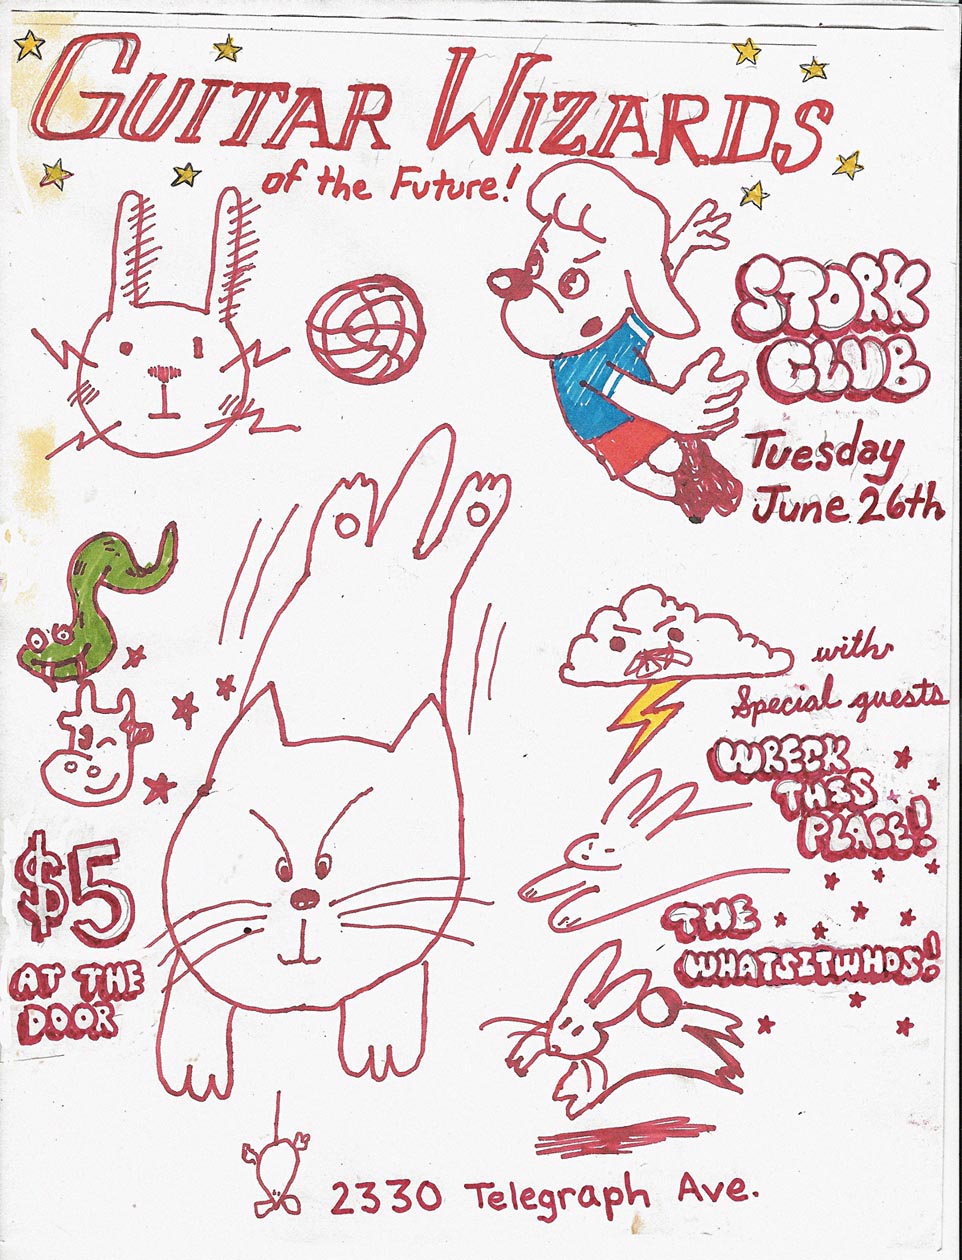 GUITAR WIZARDS
of the Future!
STORK
CLUB
Tuesday
June 26th
with
Special guests
WRECK
THIS
PLACE!
$5
AT THE
DOOR
THE
WHATSITWHOS!
2330 Telegraph Ave.